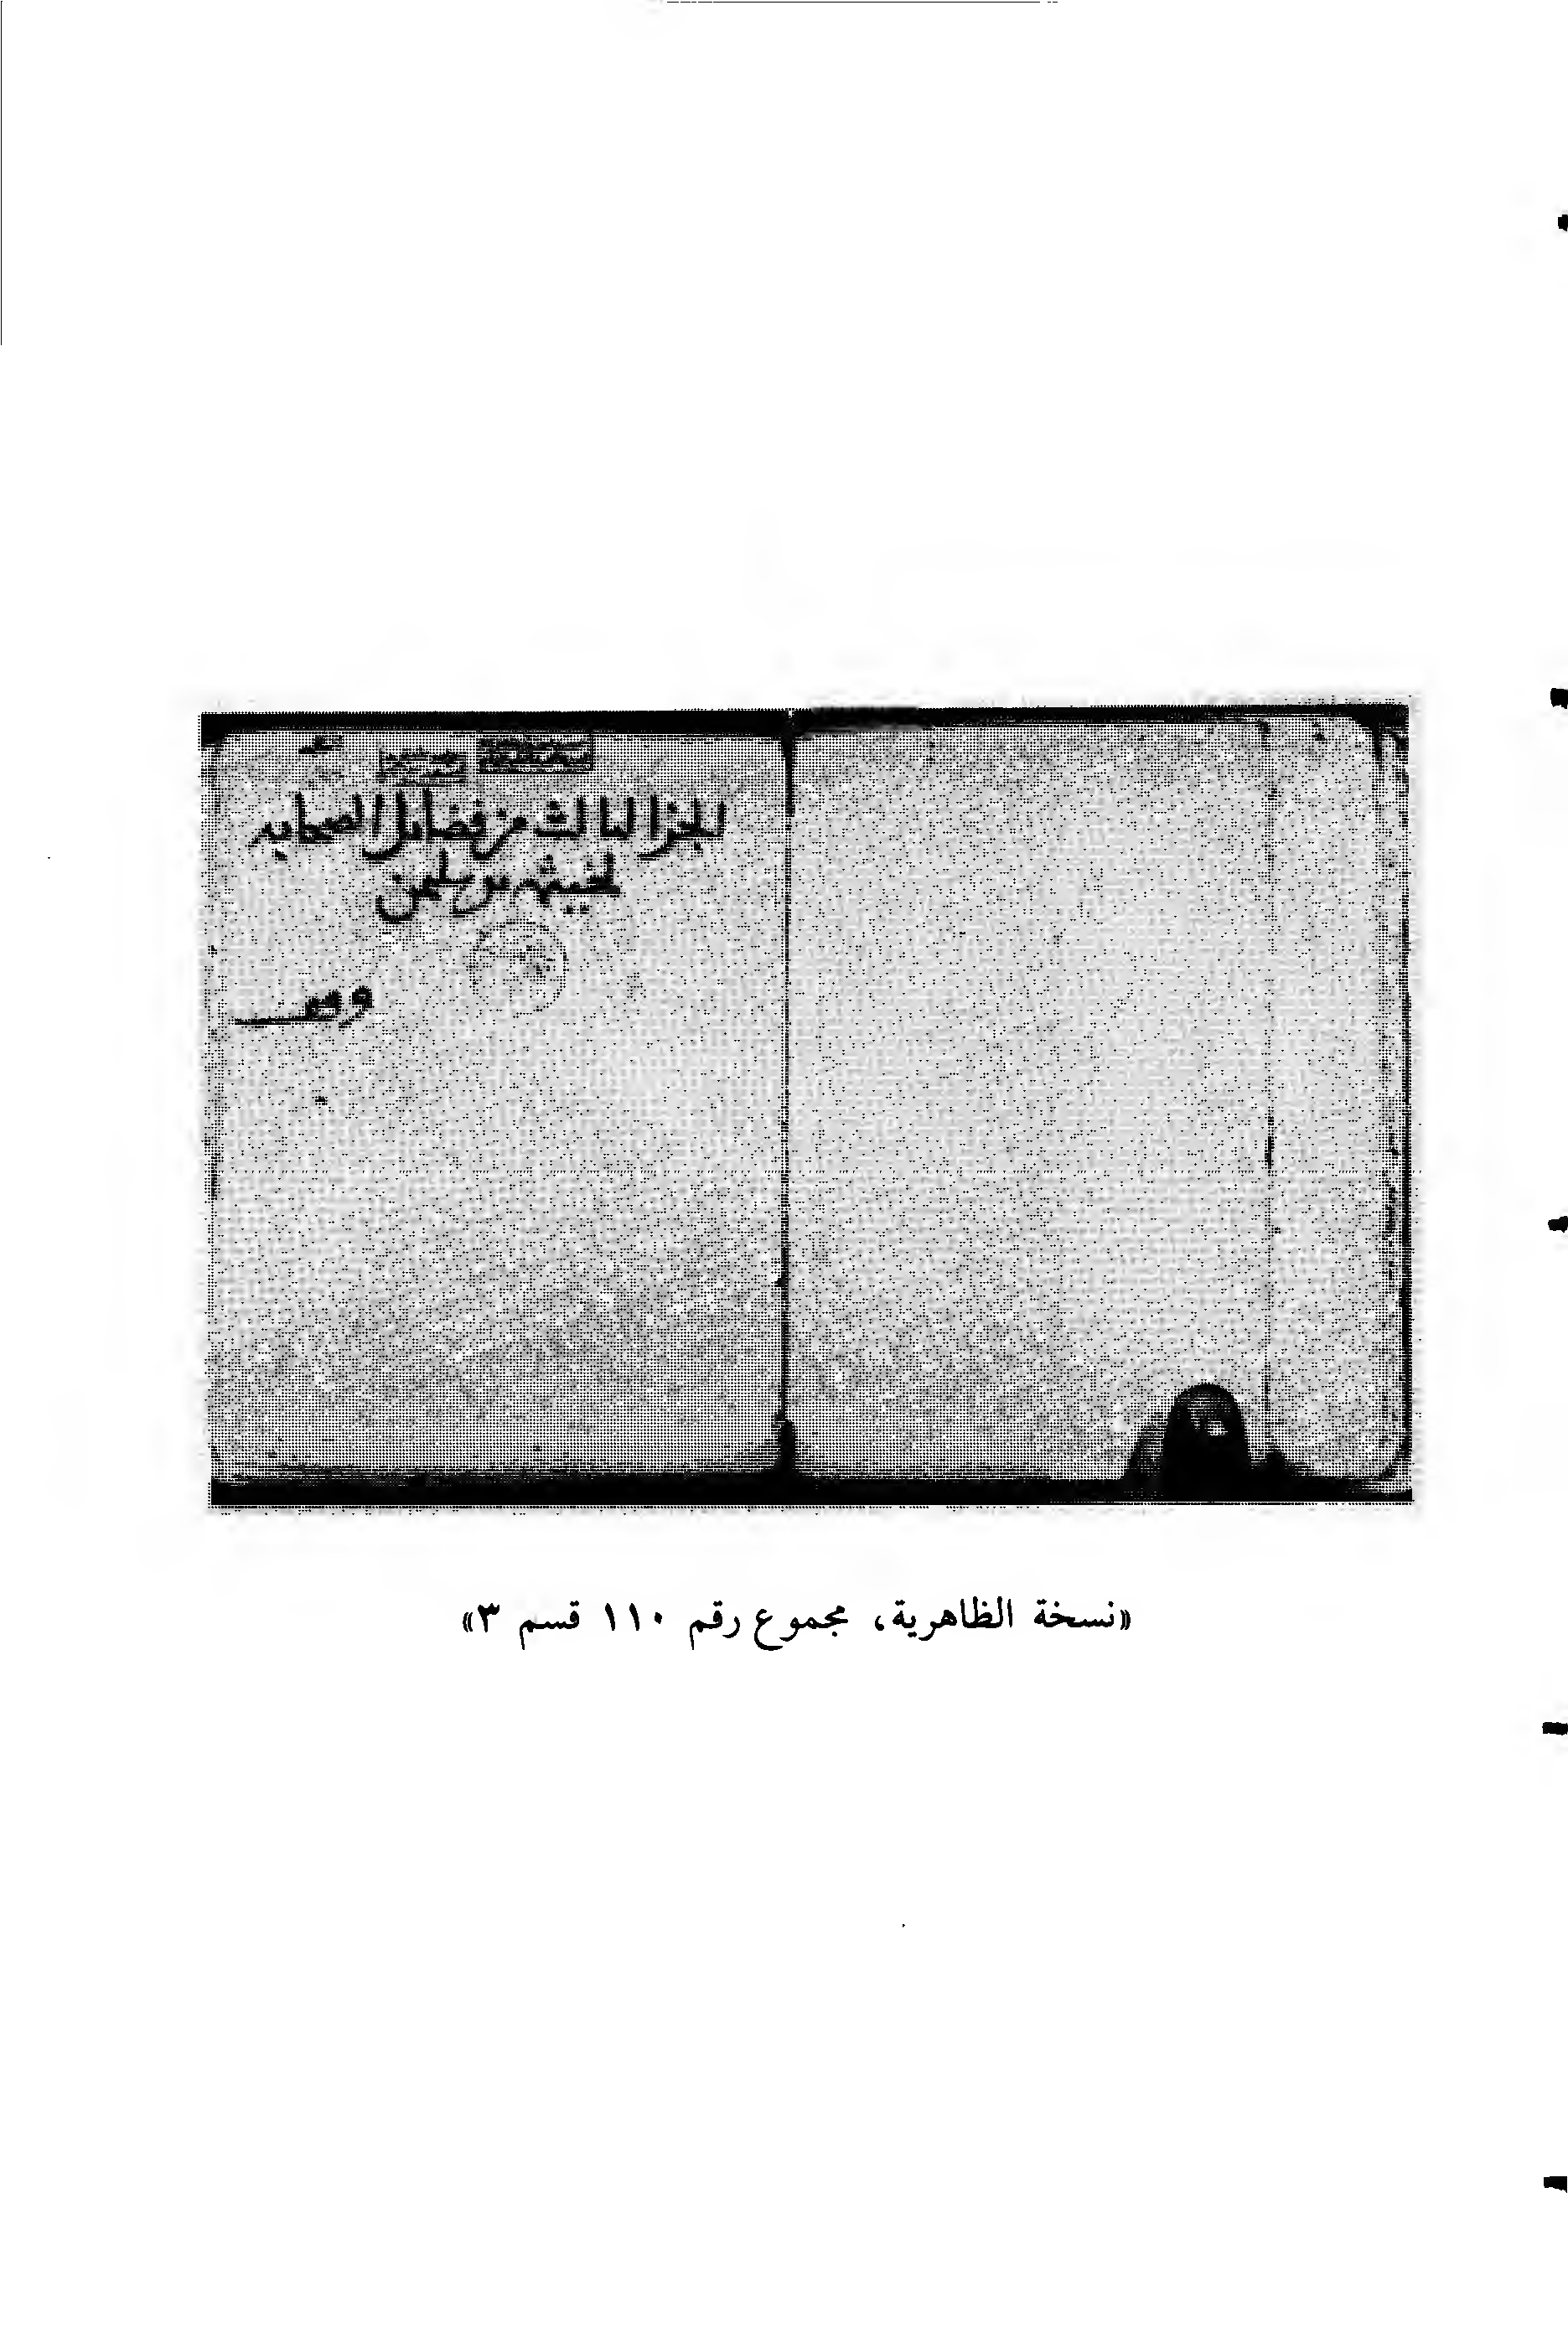 الجزا الثالث من فضايل الصحابه
لخيثمه بن سليمن
وقف
«نسخة الظاهرية، مجموع رقم ١١٠ قسم ٣»